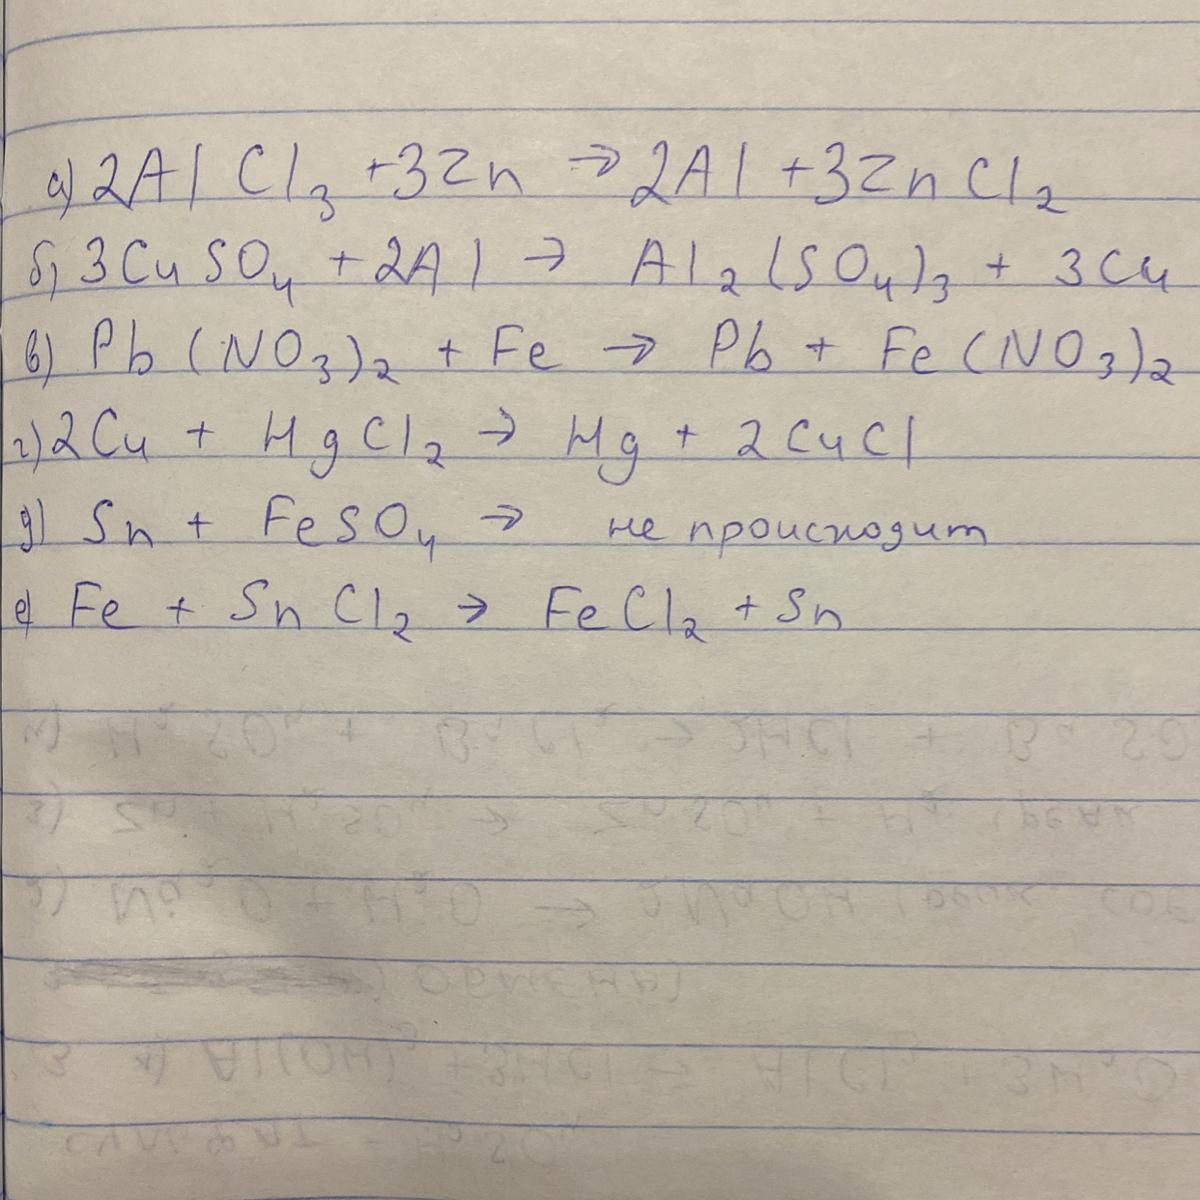 а) 2AlCl₃ + 3Zn → 2Al + 3ZnCl₂
б) 3CuSO₄ + 2Al → Al₂(SO₄)₃ + 3Cu
в) Pb(NO₃)₂ + Fe → Pb + Fe(NO₃)₂
г) 2Cu + HgCl₂ → Hg + 2CuCl
д) Sn + FeSO₄ → не происходит
е) Fe + SnCl₂ → FeCl₂ + Sn